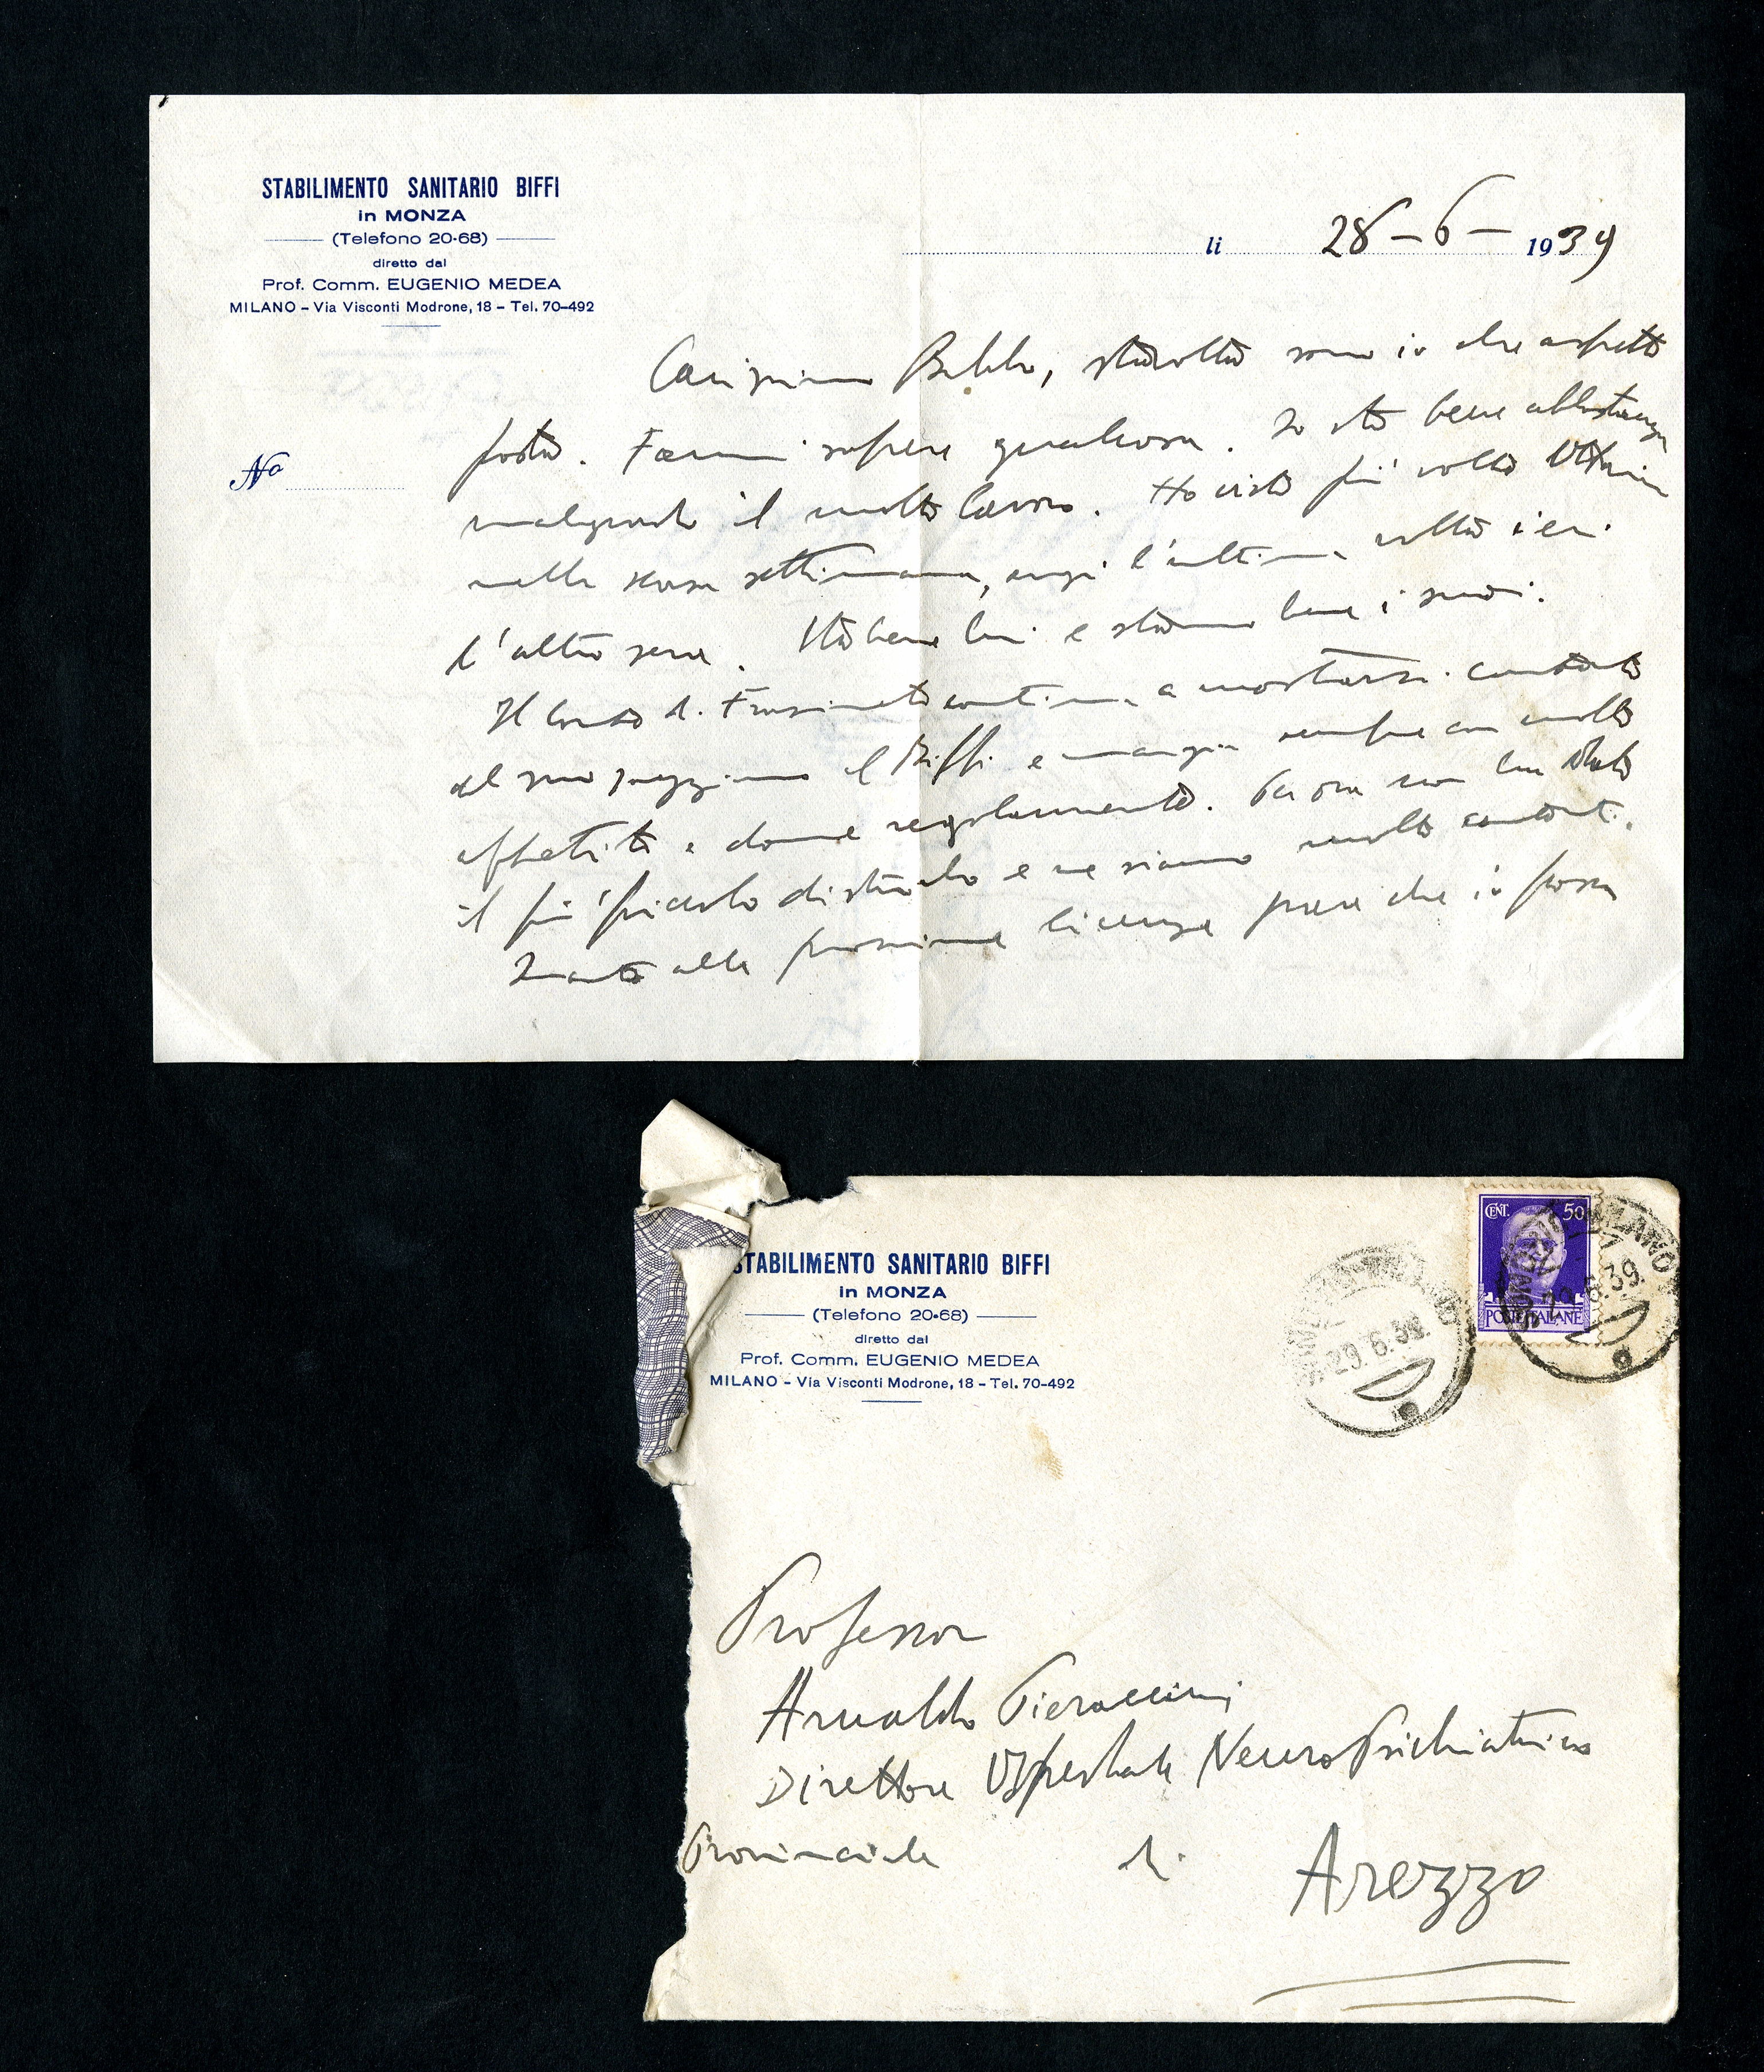 STABILIMENTO SANITARIO BIFFI
in MONZA
(Telefono 20-68)
diretto dal
Prof. Comm. EUGENIO MEDEA
MILANO - Via Visconti Modrone, 18 - Tel. 70-492
li 28-6-1939
No
Carissimo Babbo, stavolta sono io che aspetto
posta. Fammi sapere qualcosa. Io sto bene abbastanza
malgrado il molto lavoro. Ho visto più volte
nella scorsa settimana, anzi l'ultima volta ieri
l'altro sera. Sta bene lui e stanno bene i suoi.
Il Conte di Frassineto continua a mostrarsi contento
del suo soggiorno al Biffi e mangia sempre con molto
appetito e dorme regolarmente. Per ora non ha dato
il più piccolo disturbo e ne siamo molto contenti.
Quanto alla prossima licenza pare che io possa
STABILIMENTO SANITARIO BIFFI
in MONZA
(Telefono 20-68)
diretto dal
Prof. Comm. EUGENIO MEDEA
MILANO - Via Visconti Modrone, 18 - Tel. 70-492
CENT. 50
POSTE ITALIANE
MILANO
29.6.39.
29.6.39.
Professor
Arnaldo Pieraccini
Direttore Ospedale NeuroPsichiatrico
Provinciale di Arezzo